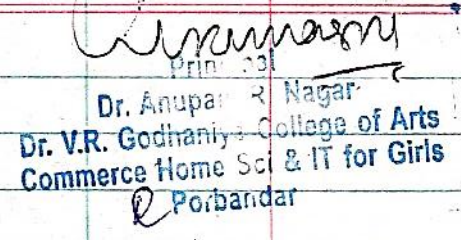 Principal
Dr. Anupam R. Nagar
Dr. V.R. Godhaniya College of Arts
Commerce Home Sci & IT for Girls
Porbandar